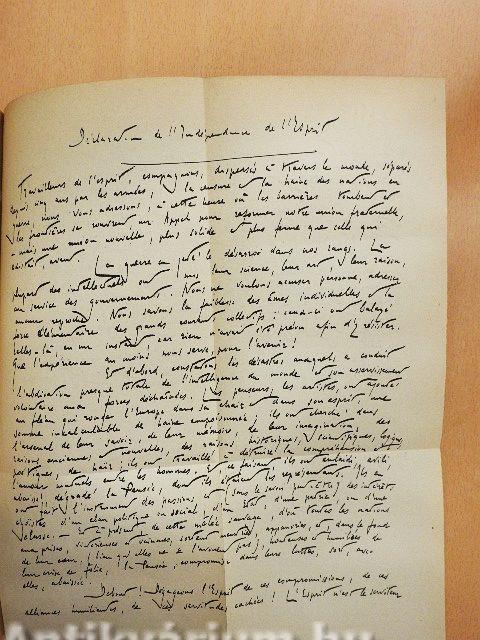 Déclaration de l'Indépendance de l'Esprit
Travailleurs de l'esprit, compagnons, dispersés à travers le monde, séparés
depuis cinq ans par les armées, la censure et la haine des nations en
guerre, nous vous adressons, à cette heure où les barrières tombent et
les frontières se rouvrent, un Appel pour reformer notre union fraternelle,
- mais une union nouvelle, plus solide et plus sûre que celle qui
existait avant.
La guerre a jeté le désarroi dans nos rangs. La
plupart des intellectuels ont mis leur science, leur art, leur raison,
au service des gouvernements. Nous ne voulons accuser personne, adresser
aucun reproche. Nous savons la faiblesse des âmes individuelles et la
force élémentaire des grands courants collectifs: ceux-ci ont balayé
celles-là, en un instant, car rien n'avait été prévu afin d'y résister.
Que l'expérience au moins nous serve, pour l'avenir!
Et d'abord, constatons les désastres auxquels a conduit
l'abdication presque totale de l'intelligence du monde et son asservissement
volontaire aux forces déchaînées. Les penseurs, les artistes, ont ajouté
au fléau qui ronge l'Europe dans sa chair et dans son esprit, une
somme incalculable de haine empoisonnée; ils ont cherché dans
l'arsenal de leur savoir, de leur mémoire, de leur imagination, des
raisons anciennes et nouvelles, des raisons historiques, scientifiques, logiques,
poétiques, de haïr; ils ont travaillé à détruire la compréhension et
l'amour mutuels entre les hommes. Et, ce faisant, ils ont enlaidi, avili,
abaissé, dégradé la Pensée, dont ils étaient les représentants. Ils en
ont fait l'instrument des passions et (sans le savoir, peut-être) des intérêts
égoïstes d'un clan politique ou social, d'un État, d'une patrie, ou d'une
classe. - Et à présent, de cette mêlée sauvage, d'où toutes les nations
aux prises, victorieuses ou vaincues, sortent meurtries, appauvries, et, dans le fond
de leur cœur, (bien qu'elles ne se l'avouent pas), honteuses et humiliées de
leur crise de folie, la Pensée, compromise dans leurs luttes, sort, avec
elles, abaissée.
Debout! Dégageons l'Esprit de ces compromissions, de ces
alliances humiliantes, de ces servitudes cachées! L'Esprit n'est le serviteur